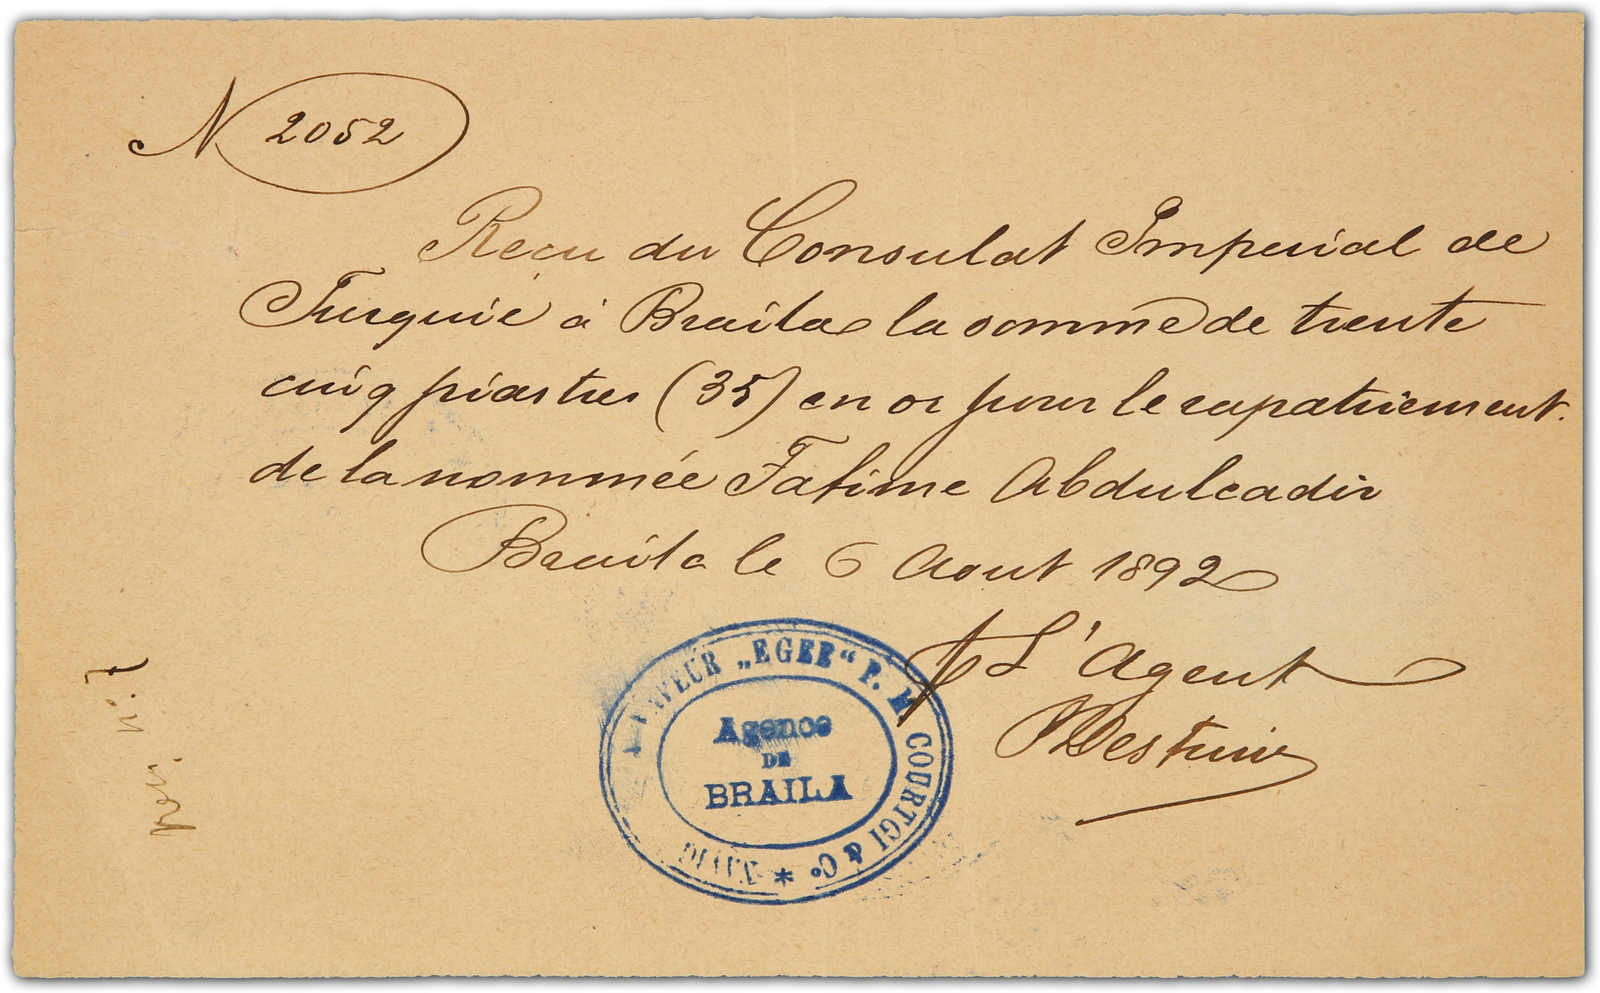 N 2052
Recu du Consulat Imperial de
Turquie à Braila la somme de trente
cinq piastres (35) en or pour le rapatriement.
de la nommée Fatime Abdulcadir
Braila le 6 Aout 1892
L'Agent
VAPEUR „EGÉE“ P. M. COURTGI & Co. *
Agence
DE
BRAILA